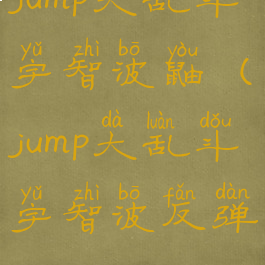 jump大乱斗
yǔ zhì bō yòu
宇智波鼬（
dà luàn dǒu
jump大乱斗
yǔ zhì bō fǎn dàn
宇智波反弹